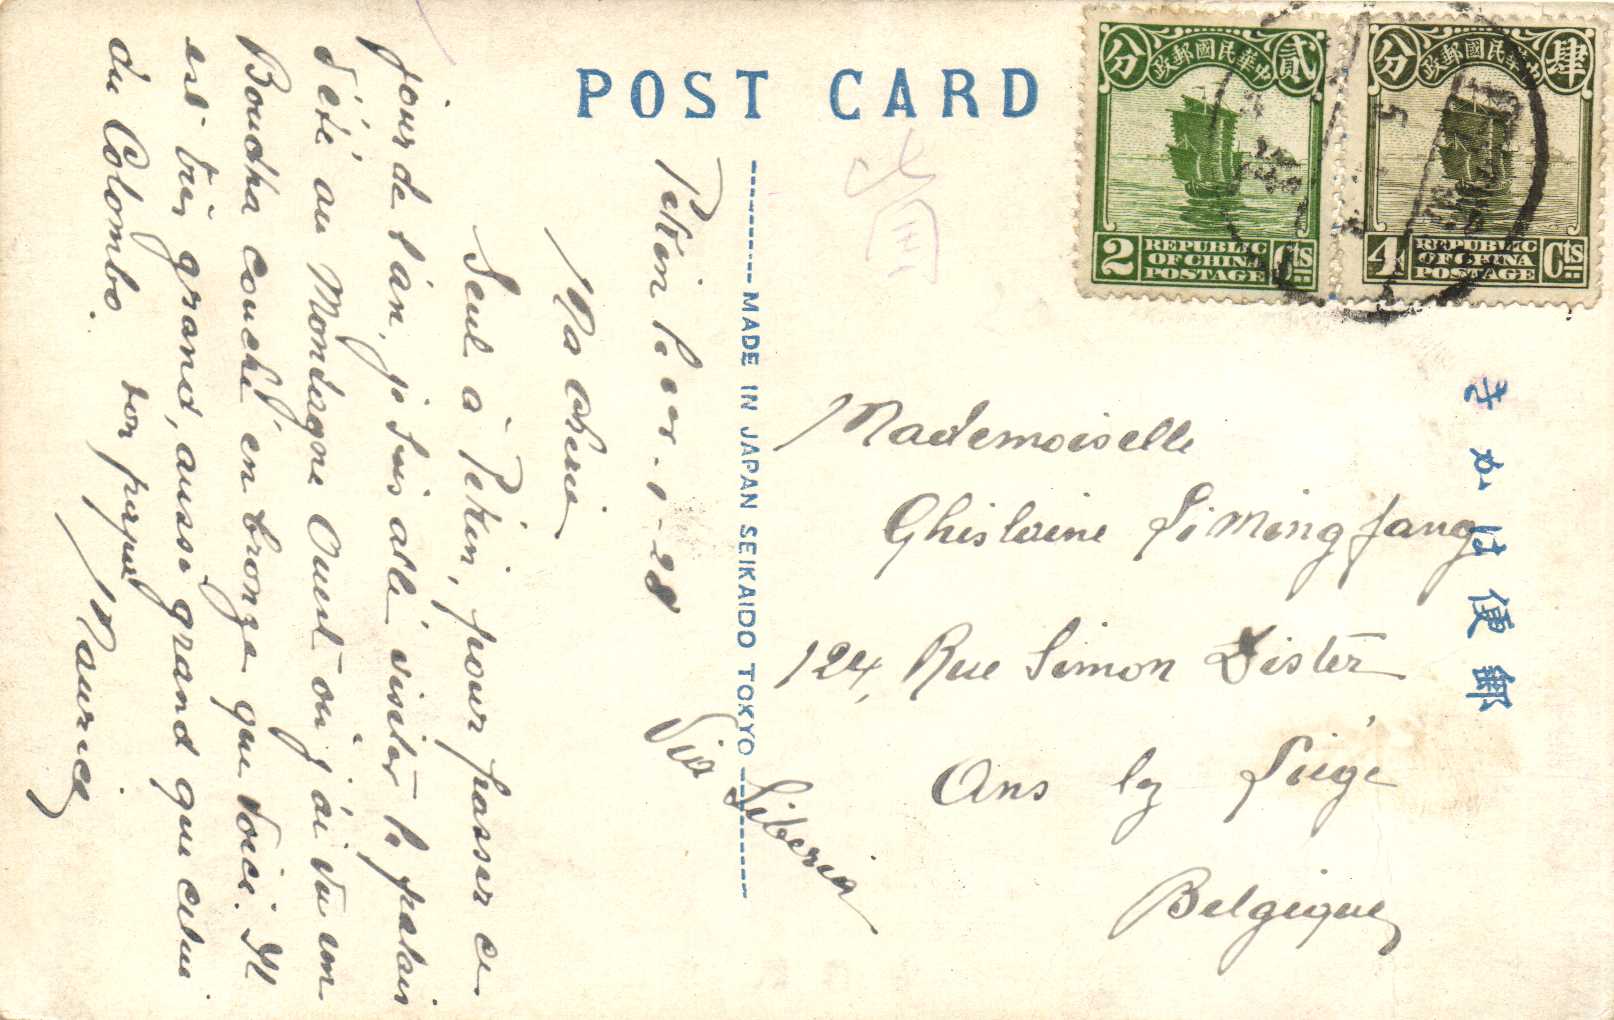 POST CARD
分 政郵國民華中 貳
2 REPUBLIC OF CHINA POSTAGE Cts
分 政郵國民華中 肆
4 REPUBLIC OF CHINA POSTAGE Cts
MADE IN JAPAN SEIKAIDO TOKYO
きかは便郵
Pekin le 1-28
Ma chérie
Seul à Pekin, pour passer ce
jour de l'an, je suis allé visiter le palais
d'été au Montagne Ouest où j'ai vu un
Boudha couché en bronze que voici. Il
est très grand, aussi grand que celui
du Colombo. ton papa Maurice
Via Siberia
Mademoiselle
Ghislaine Li Ming Jang
124, Rue Simon Dister
Ans lz Liége
Belgique